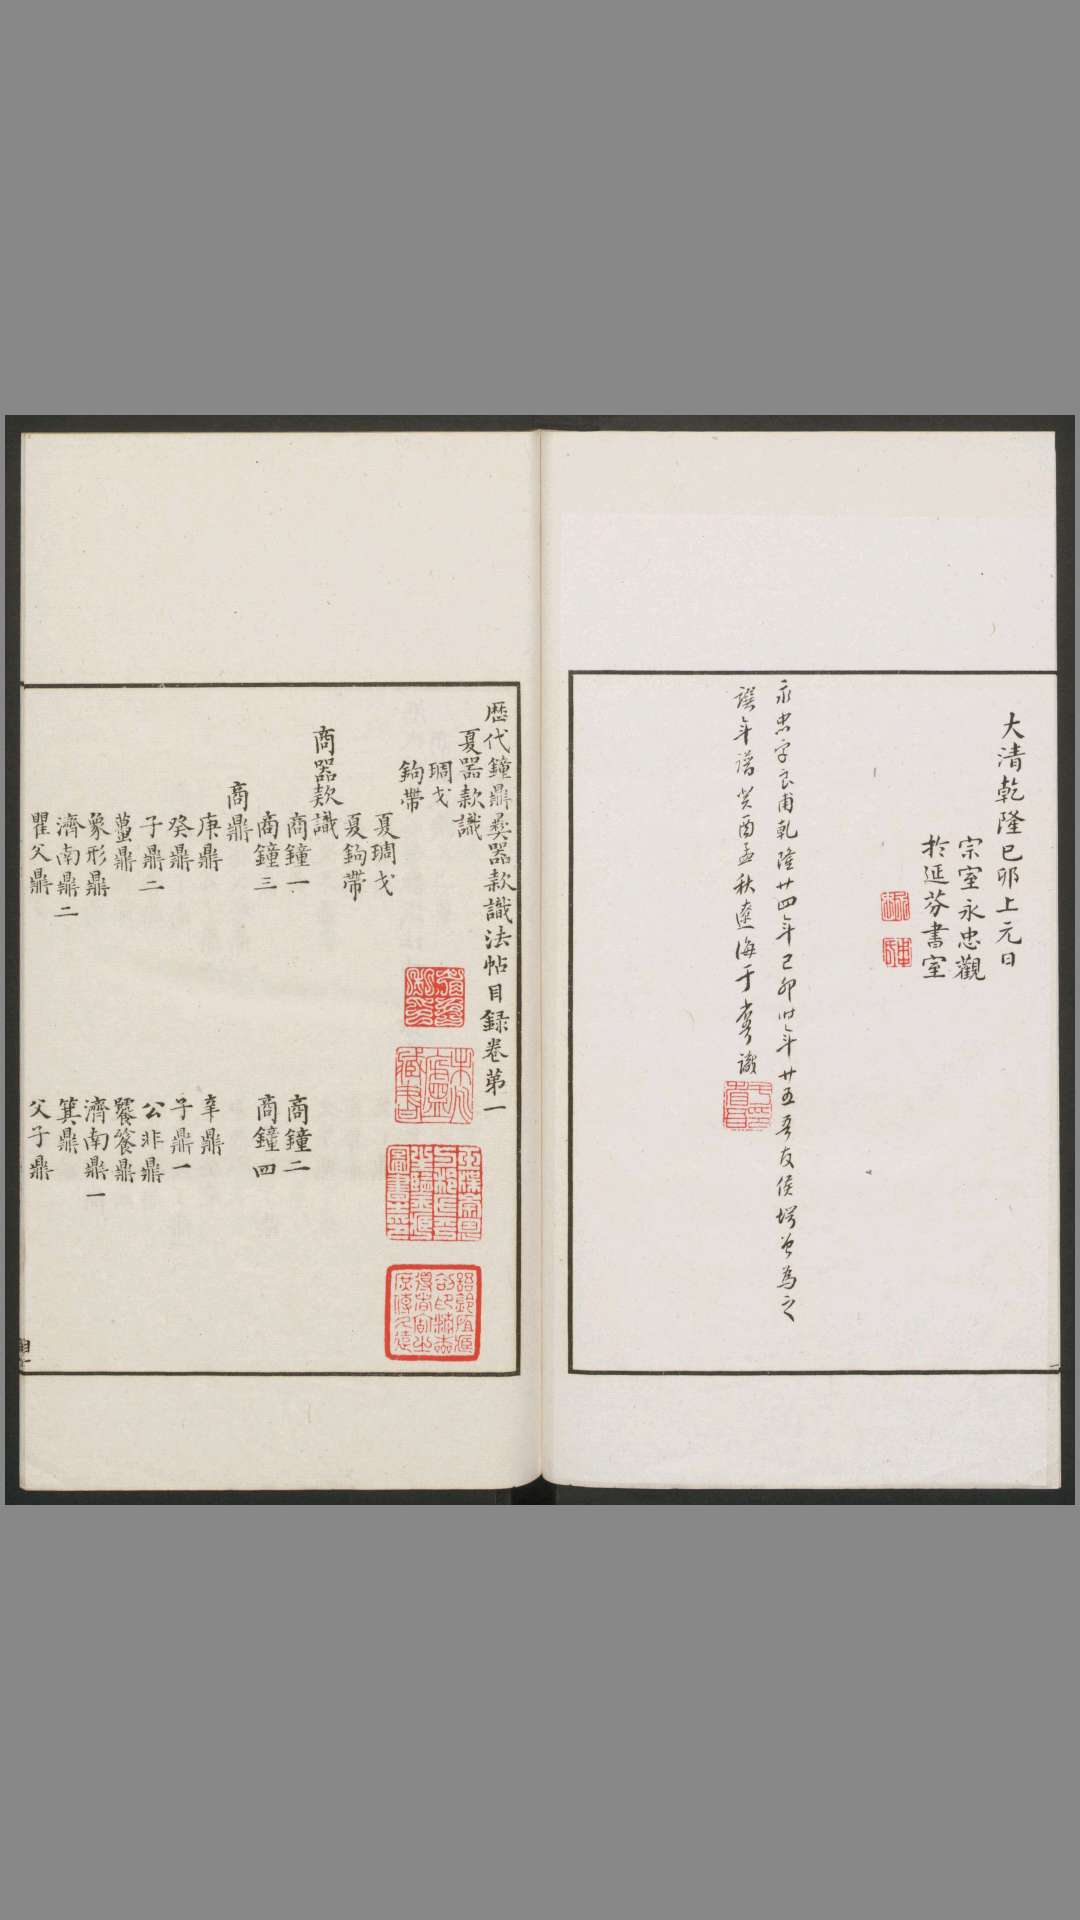 大清乾隆己卯上元日
宗室永忠觀
於延芬書室
永忠字良甫乾隆廿四年己卯時年廿五吾友侯堮曾為之
譔年譜癸酉孟秋遼海于省吾識
歷代鐘鼎彝器款識法帖目録卷第一
夏器款識
琱戈
鉤帶
夏琱戈
夏鉤帶
商器款識
商鐘一
商鐘二
商鐘三
商鐘四
商鼎
庚鼎
辛鼎
癸鼎
子鼎一
子鼎二
公非鼎
蠆鼎
饕餮鼎
象形鼎
濟南鼎一
濟南鼎二
箕鼎
瞿父鼎
父子鼎